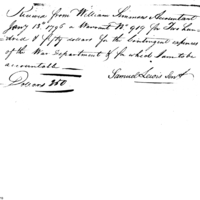 Received from William Simmons Accountant
Jany 13th 1796 a Warrant No 909 for Two hun
dred & fifty dollars for the Contingent expences
of the War Department & for which I am to be
accountable
Dollars 250
Samuel Lewis Senr